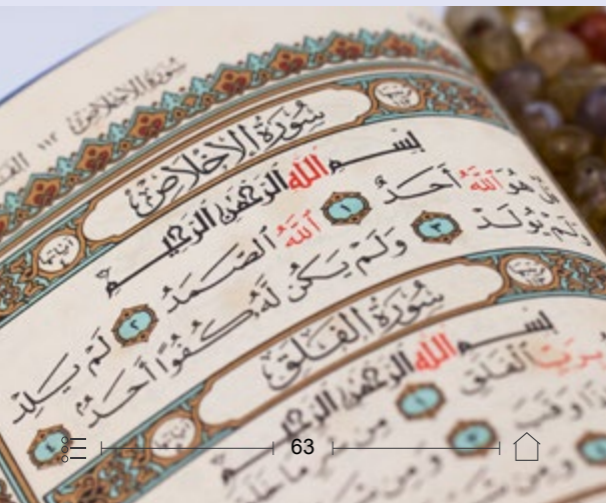 سُورَةُ الإِخْلَاصِ ١١٢
سُورَةُ الإِخْلَاصِ
بِسْمِ اللَّهِ الرَّحْمَنِ الرَّحِيمِ
هُوَ اللَّهُ أَحَدٌ ١ اللَّهُ الصَّمَدُ ٢ لَمْ يَلِدْ
وَلَمْ يُولَدْ ٣ وَلَمْ يَكُنْ لَهُ كُفُوًا أَحَدٌ ٤
سُورَةُ الفَلَقِ
بِسْمِ اللَّهِ الرَّحْمَنِ الرَّحِيمِ
بِرَبِّ الْفَلَقِ ١ مِنْ شَرِّ مَا خَلَقَ
63